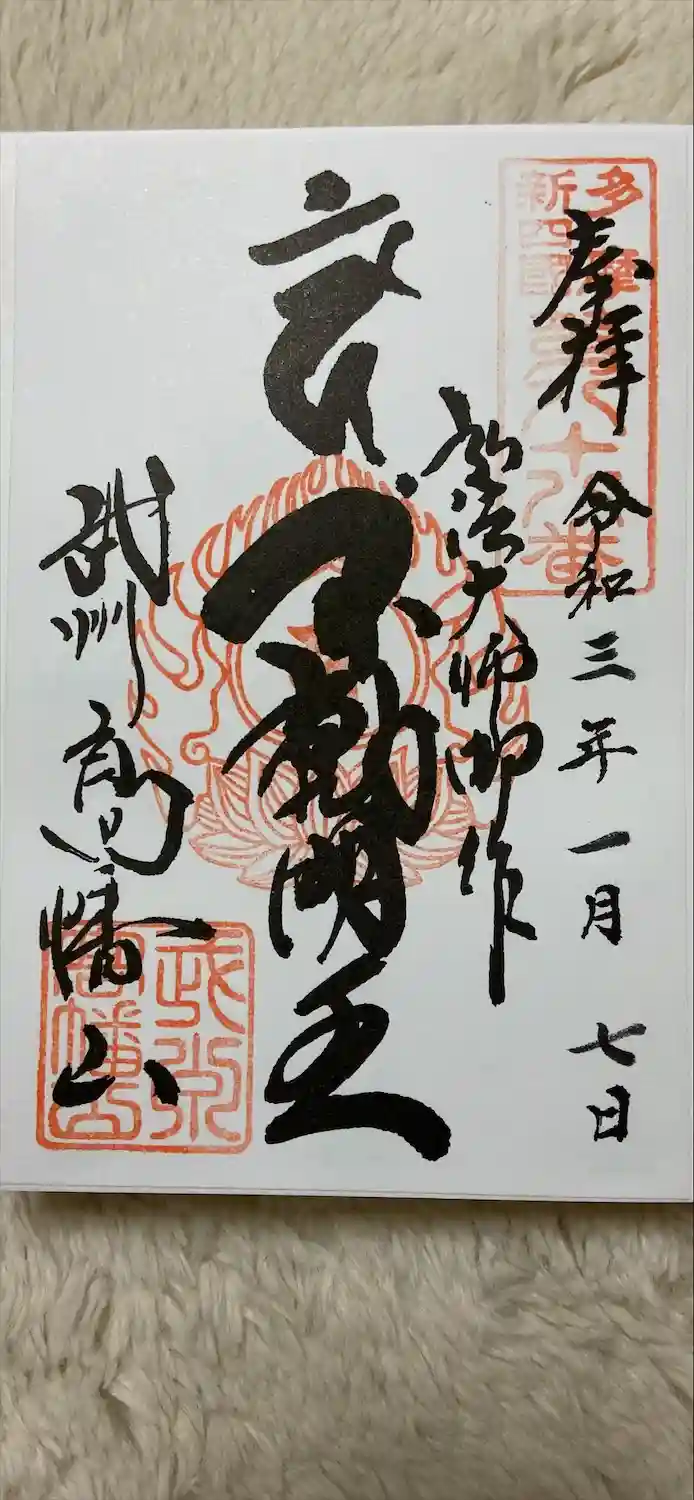 多摩
新四國
八十八番
奉拝
令和三年一月七日
弘法大師御作
不動明王
武州高幡山
武州
高幡山